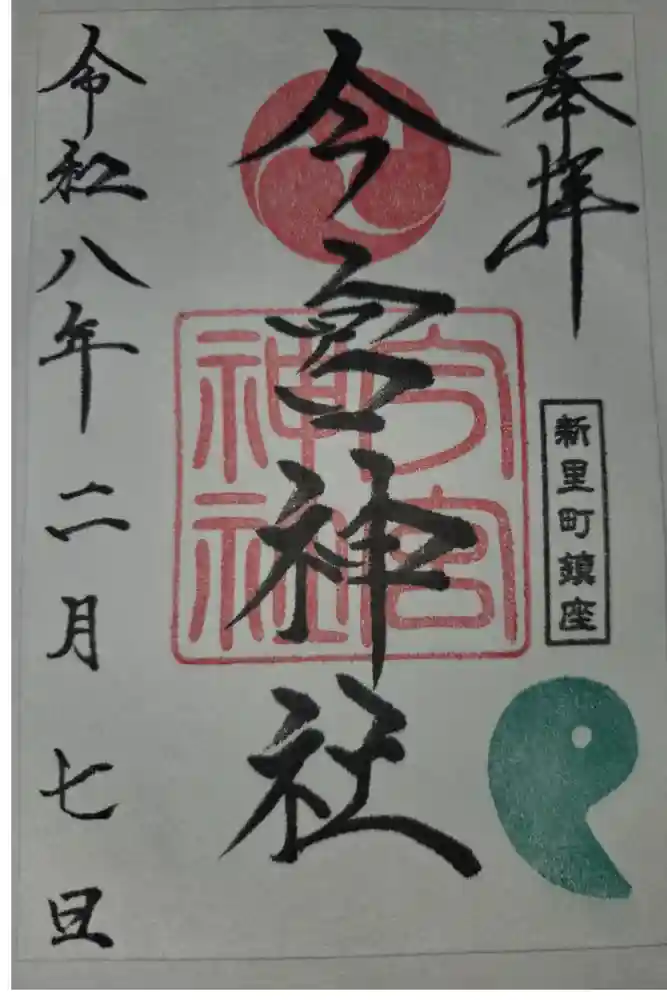 奉拝
新里町鎮座
今宮神社
今宮神社
令和八年二月七日